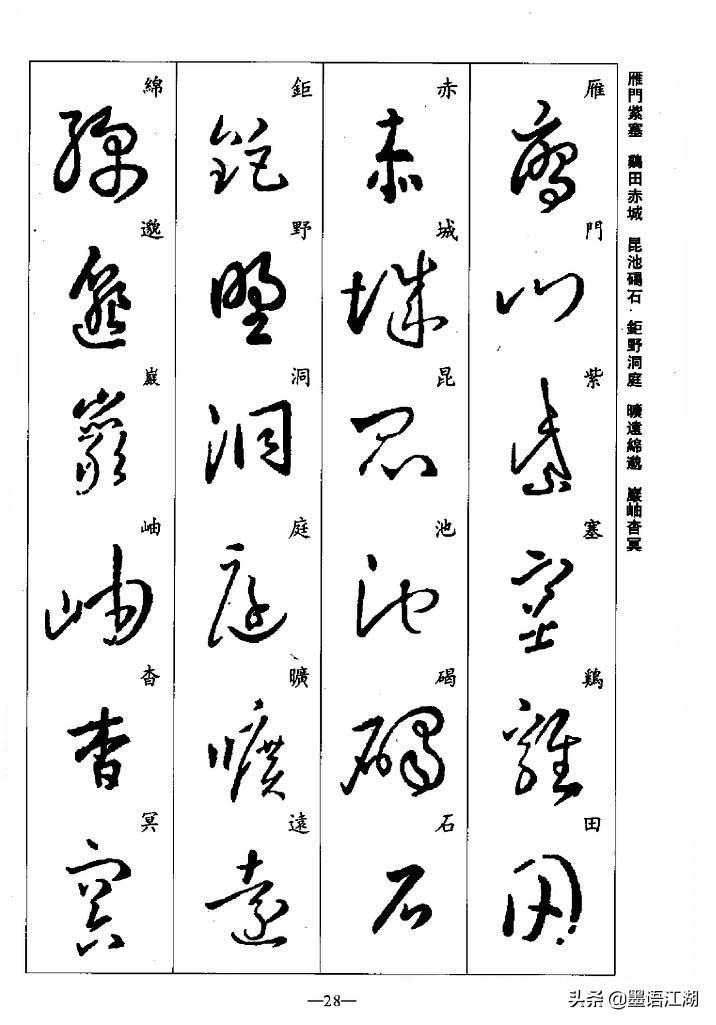 雁門紫塞 鷄田赤城 昆池碣石 鉅野洞庭 曠遠綿邈 巖岫杳冥
雁門紫塞鷄田
赤城昆池碣石
鉅野洞庭曠遠
綿邈巖岫杳冥
—28—
头条 @墨语江湖